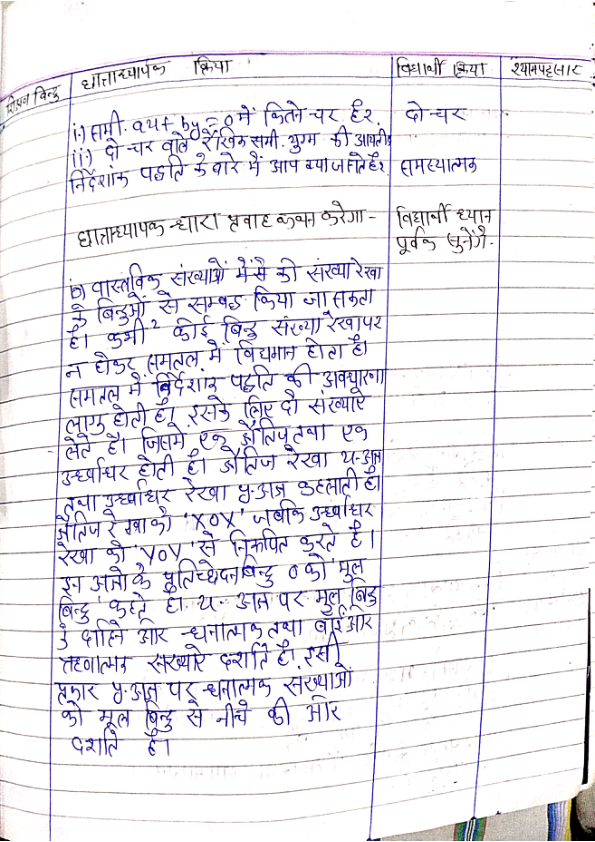 शिक्षण बिन्दु
छात्राध्यापक क्रिया
विद्यार्थी क्रिया
श्यामपट्टसार
i.) समी. ax + by = 0 में कितने चर हैं?
दो-चर
ii.) दो-चर वाले रैखिक समी. युग्म की
निर्देशांक पद्धति के बारे में आप क्या जानते हैं?
समस्यात्मक
छात्राध्यापक द्वारा प्रवाह कथन करेगा -
विद्यार्थी ध्यान
पूर्वक सुनेंगे.
वास्तविक संख्याओं में से की संख्या रेखा
के बिन्दुओं से सम्बद्ध किया जा सकता
है। कभी² कोई बिन्दु संख्या रेखा पर
न होकर समतल में विद्यमान होता है।
समतल में निर्देशांक पद्धति की अवधारणा
लागू होती है, इसके लिए दो संख्याएं
लेते है। जिसमें एक क्षैतिज तथा एक
उर्ध्वाधर होती है। क्षैतिज रेखा x-अक्ष
तथा उर्ध्वाधर रेखा y-अक्ष कहलाती है।
क्षैतिज रेखा को 'XOX' जबकि उर्ध्वाधर
रेखा को 'YOY' से निरूपित करते हैं।
इन अक्षो के प्रतिच्छेदन बिन्दु 0 को 'मुल
बिन्दु' कहते है। x- अक्ष पर मुल बिंदु
के दाहिने ओर धनात्मक तथा बाई ओर
ऋणात्मक संख्यारे दर्शाते है. इसी
प्रकार y-अक्ष पर धनात्मक संख्याओं
को मूल बिन्दु से नीचे की ओर
दर्शाते है।